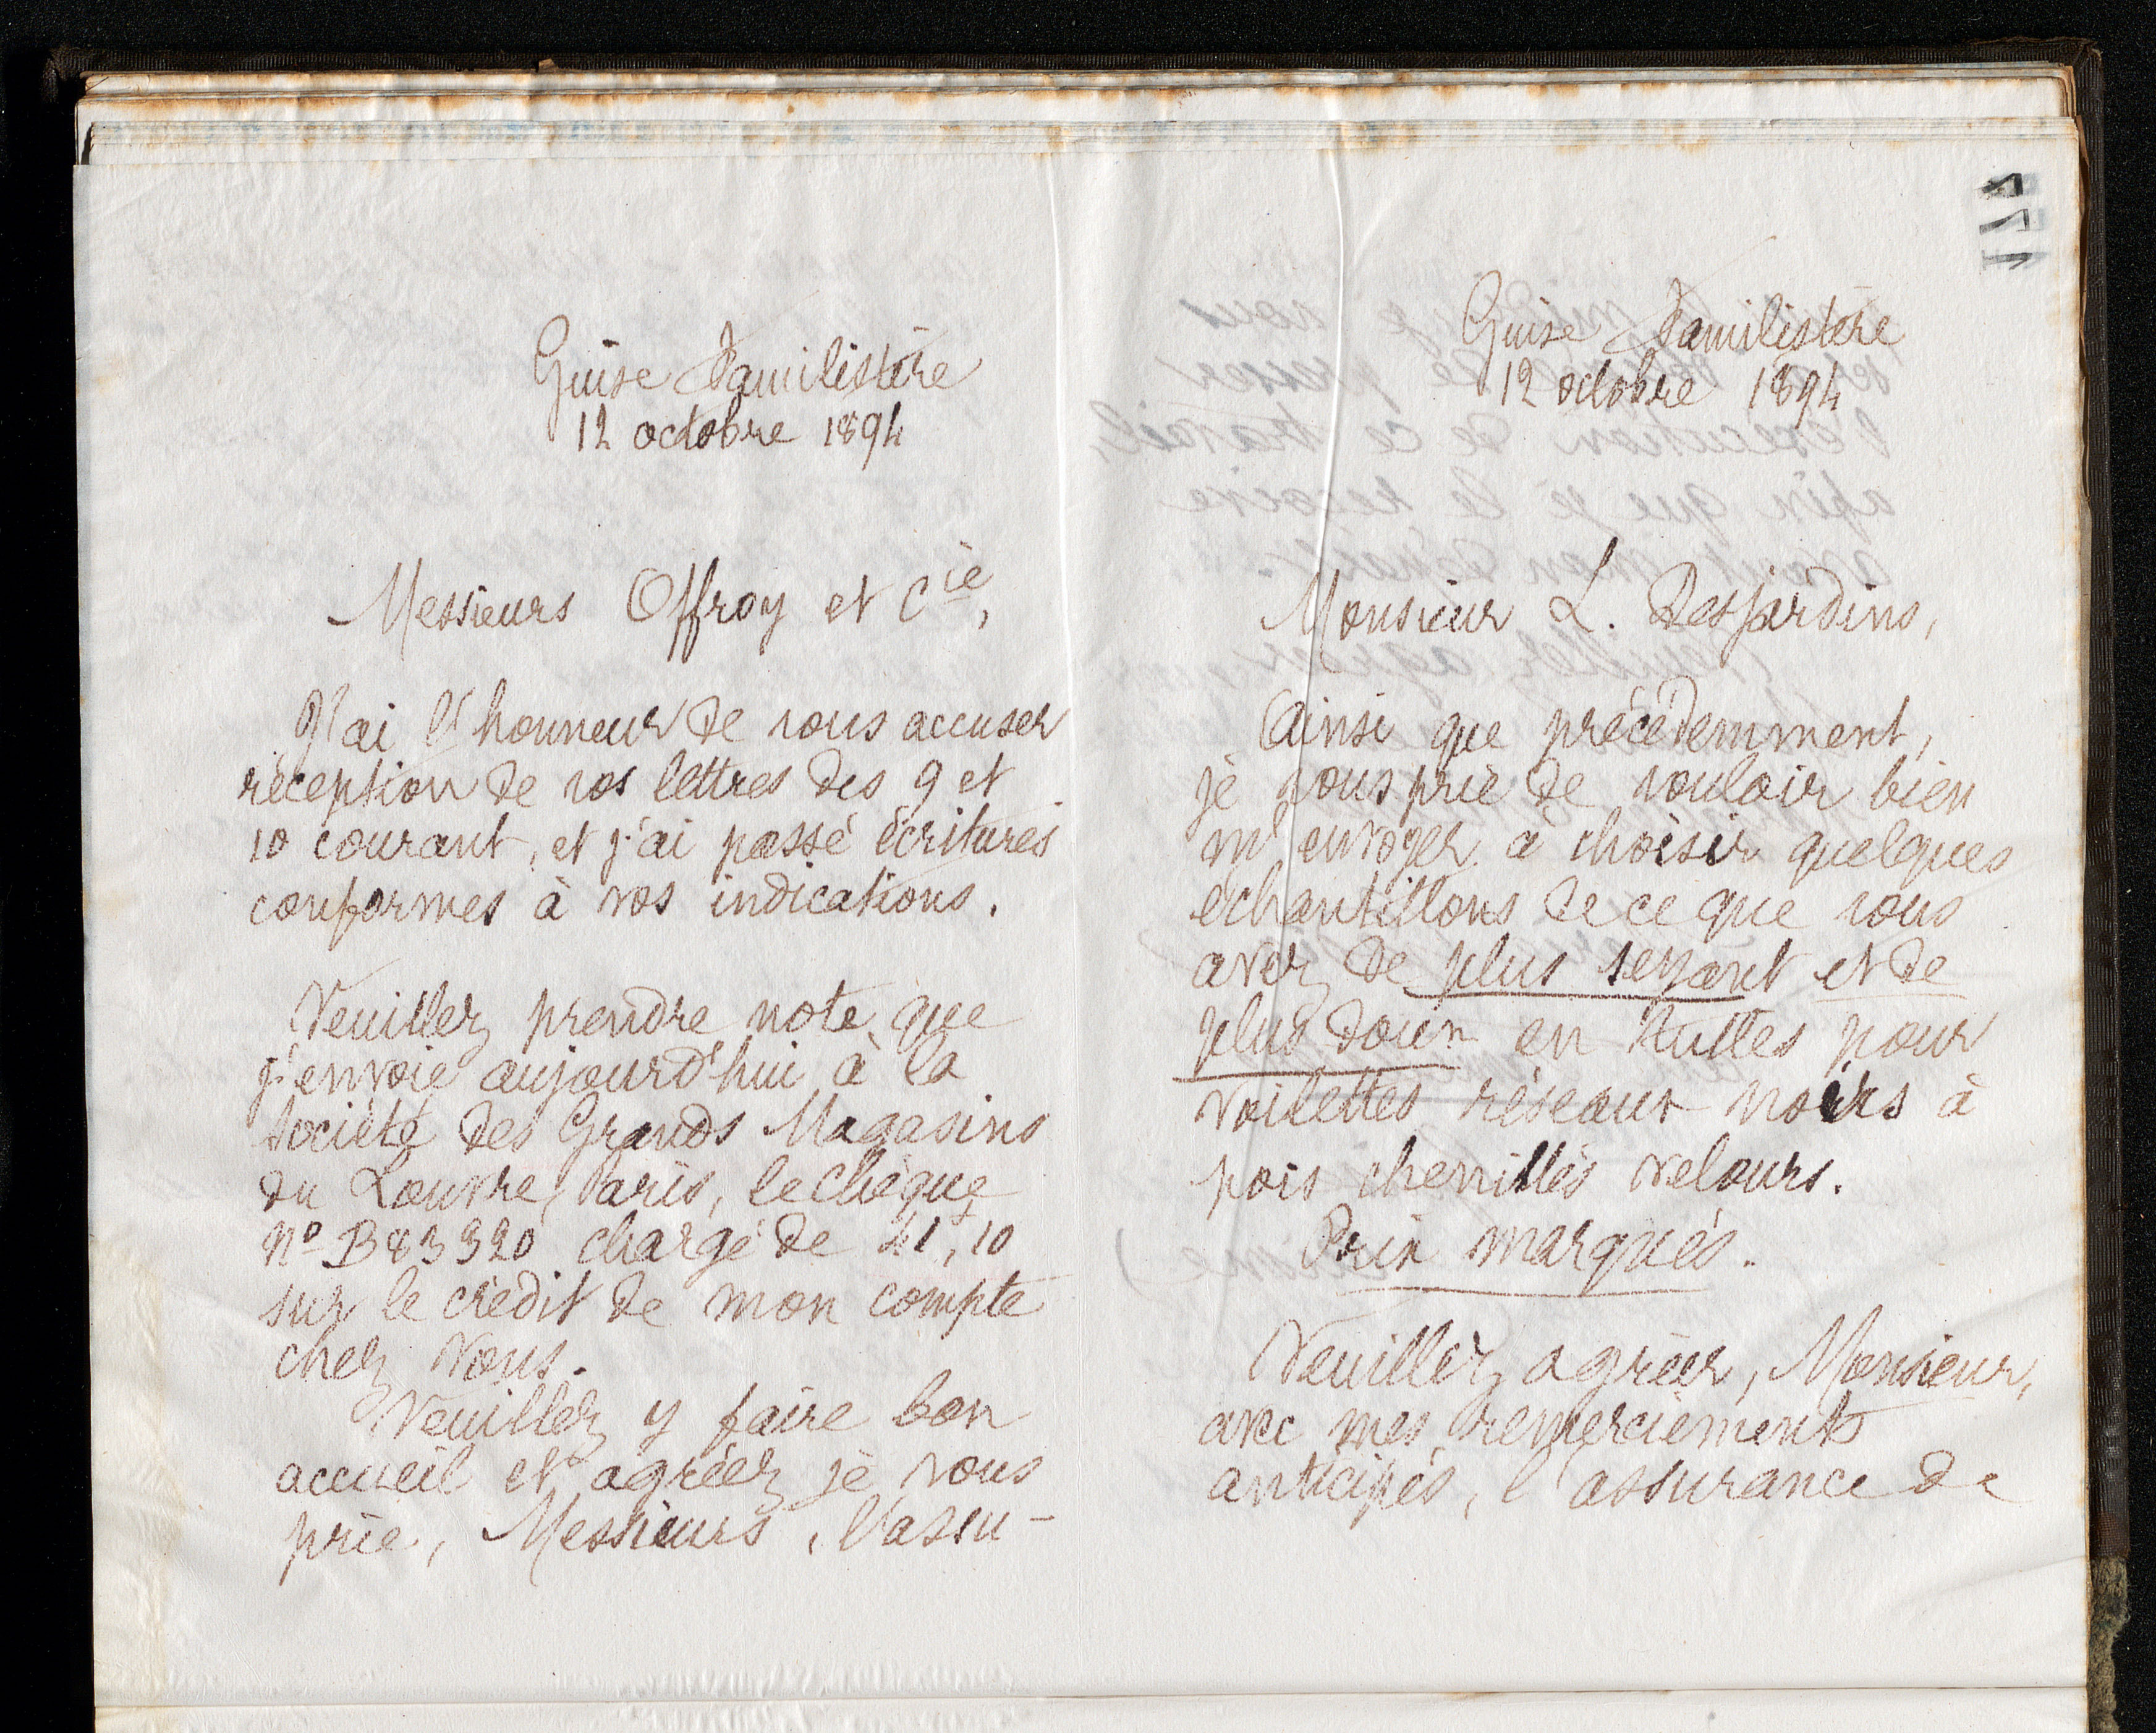 Guise Familistère
12 octobre 1894
Messieurs Offroy et Cie,
J'ai l'honneur de vous accuser
réception de vos lettres des 9 et
10 courant, et j'ai passé écritures
conformes à vos indications.
Veuillez prendre note que
j'envoie aujourd'hui à la
Société des Grands Magasins
du Louvre, Paris, le chèque
No B83920 chargé de 41,10
sur le crédit de mon compte
chez vous.
Veuillez y faire bon
accueil et agréez je vous
prie, Messieurs, l'assu-
Guise Familistère
12 octobre 1894
Monsieur L. Desjardins,
Ainsi que précédemment,
je vous prie de vouloir bien
m'envoyer à choisir quelques
échantillons de ce que vous
avez de plus seyant et de
plus doux en tulles pour
voilettes réseaux noirs à
pois chenillés velours.
Prix marqués.
Veuillez agréer, Monsieur,
avec mes remerciements
anticipés, l'assurance de